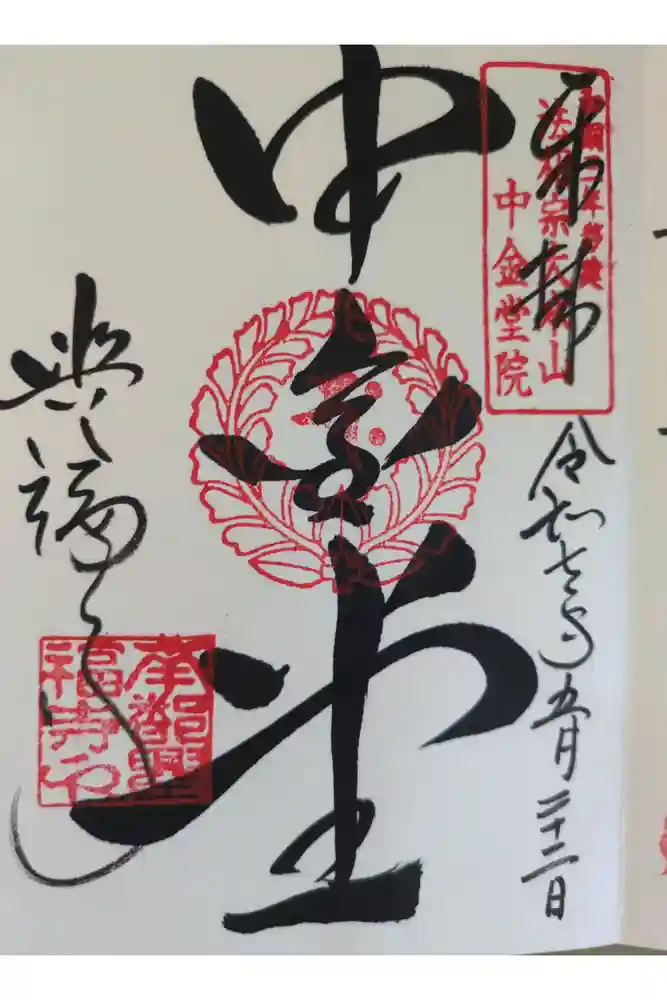 奉拝
法相宗大本山
中金堂院
令和七年五月二十二日
中金堂
興福寺
南都興
福寺印